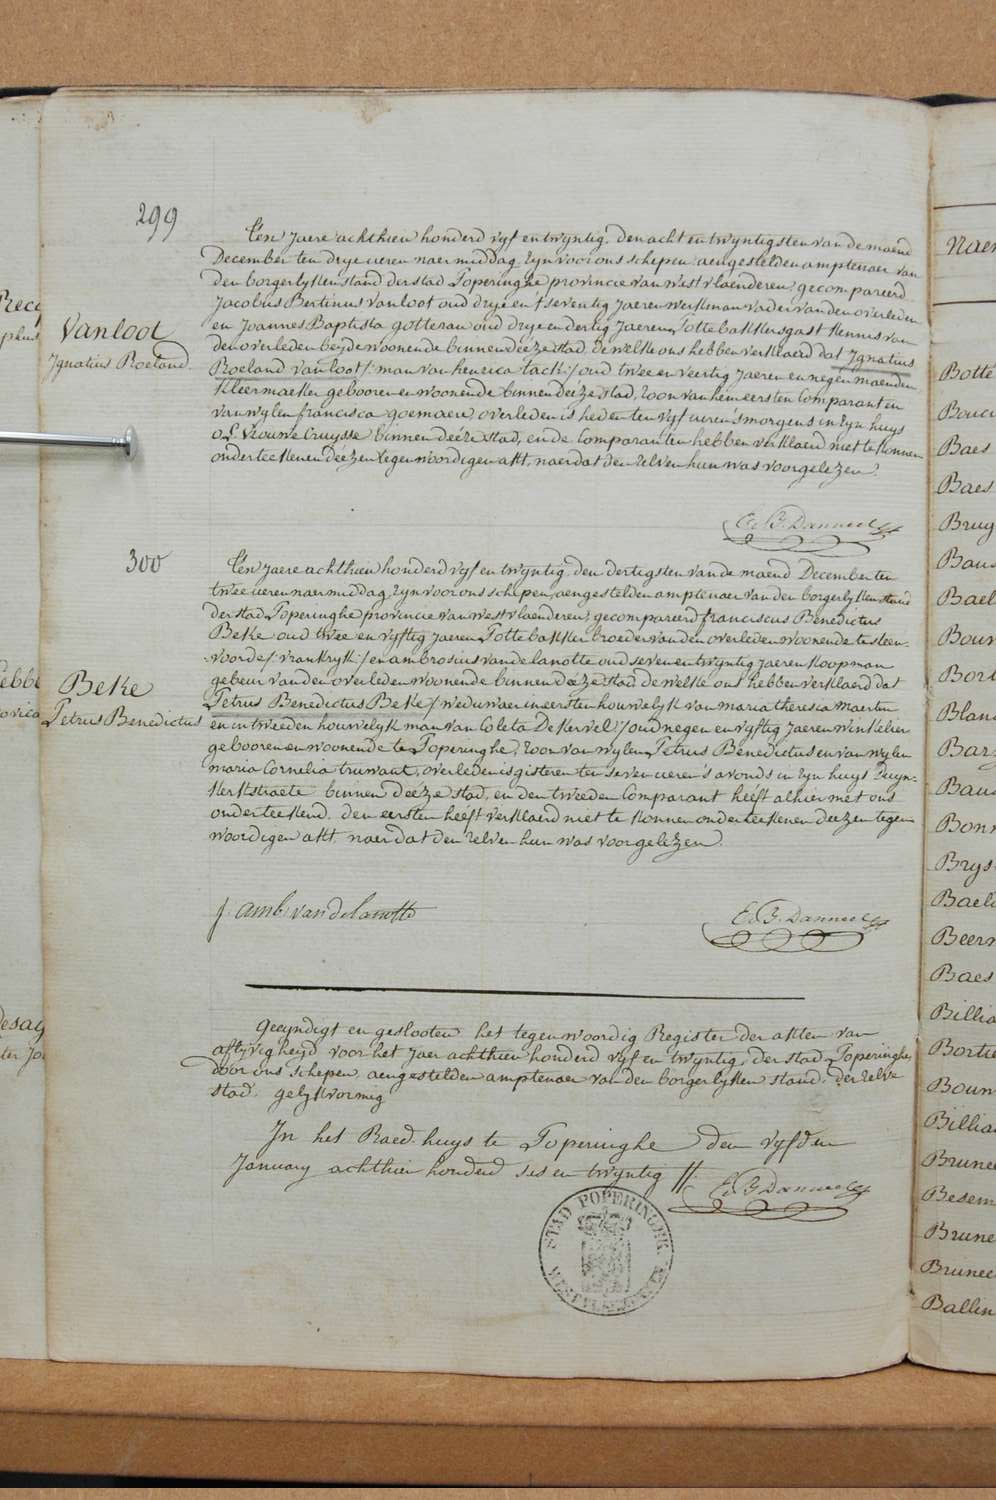 299
Vanloot
Ignatius Roeland
Ten jaere achthien honderd vyf en twyntig, den acht en twyntigsten van de maend
December ten drye ueren naer middag, zyn voor ons schepen aengestelden amptenaer van
den borgerlyken stand der stad Poperinghe provincie van westvlaenderen, gecompareerd
Jacobus Bertinus vanloot oud drye en seventig jaeren werkman vader van den overleden
en Joannes Baptista gotteran oud drye en dertig jaeren, Pottebakkersgast kennis van
den overleden beyde woonende binnen deeze stad de welke ons hebben verklaerd dat Ignatius
Roeland vanloot /: man van henrica tack :/ oud twee en veertig jaeren en negen maenden
kleermaeker gebooren en woonende binnen deeze stad, zoon van hem eersten Comparant en
van wylen francisca goemaere, overleden is heden ten vyf ueren 's morgens in zyn huys
O.L. Vrouwe Cruysse binnen deeze stad, en de Comparanten hebben verklaerd niet te konnen
onderteekenen deezen tegenwoordigen akt, naer dat den zelven hun was voorgelezen.
E. B. Danneel
300
Beke
Petrus Benedictus
Ten jaere achthien honderd vyf en twyntig, den dertigsten van de maend December ten
twee ueren naer middag, zyn voor ons schepen, aengestelden amptenaer van den borgerlyken stand
der stad Poperinghe provincie van westvlaenderen, gecompareerd franciscus Benedictus
Beke oud twee en vyftig jaeren Pottebakker broeder van den overleden woonende te steen-
voorde /: vrankryk :/ en ambrosius vandelanotte oud seven en twyntig jaeren koopman
gebeur van den overleden woonende binnen deeze stad de welke ons hebben verklaerd dat
Petrus Benedictus Beke /: weduwaer in eersten houwelyk van maria theresia maerten
en in tweeden houwelyk man van Coleta De Kervel :/ oud negen en vyftig jaeren winkelier
gebooren en woonende te Poperinghe, zoon van wylen Petrus Benedictus en van wylen
maria Cornelia truwant, overleden is gisteren ten seven ueren 's avonds in zyn huys Duyn-
kerkstraete binnen deeze stad, en den tweeden Comparant heeft alhier met ons
onderteekend, den eersten heeft verklaerd niet te konnen onderteekenen deezen tegen-
woordigen akt, naer dat den zelven hun was voorgelezen.
j. amb. vandelanotte
E. B. Danneel
Geeyndigt en geslooten het tegenwoordig Register der akten van
aflyvigheyd voor het jaer achthien honderd vyf en twyntig, der stad Poperinghe,
door ons schepen, aengestelden amptenaer van den borgerlyken stand, der zelve
stad, gelykvormig
In het Raed huys te Poperinghe den vyfden
January achthien honderd ses en twyntig //
E. B. Danneel
STAD POPERINGHE
Naem
Botte
Baes
Baes
Brug
Baus
Bael
Boun
Bort
Blan
Barz
Baus
Bonn
Brys
Bael
Beern
Baes
Billia
Bortie
Boun
Billia
Brunee
Besem
Brune
Brunee
Ballin